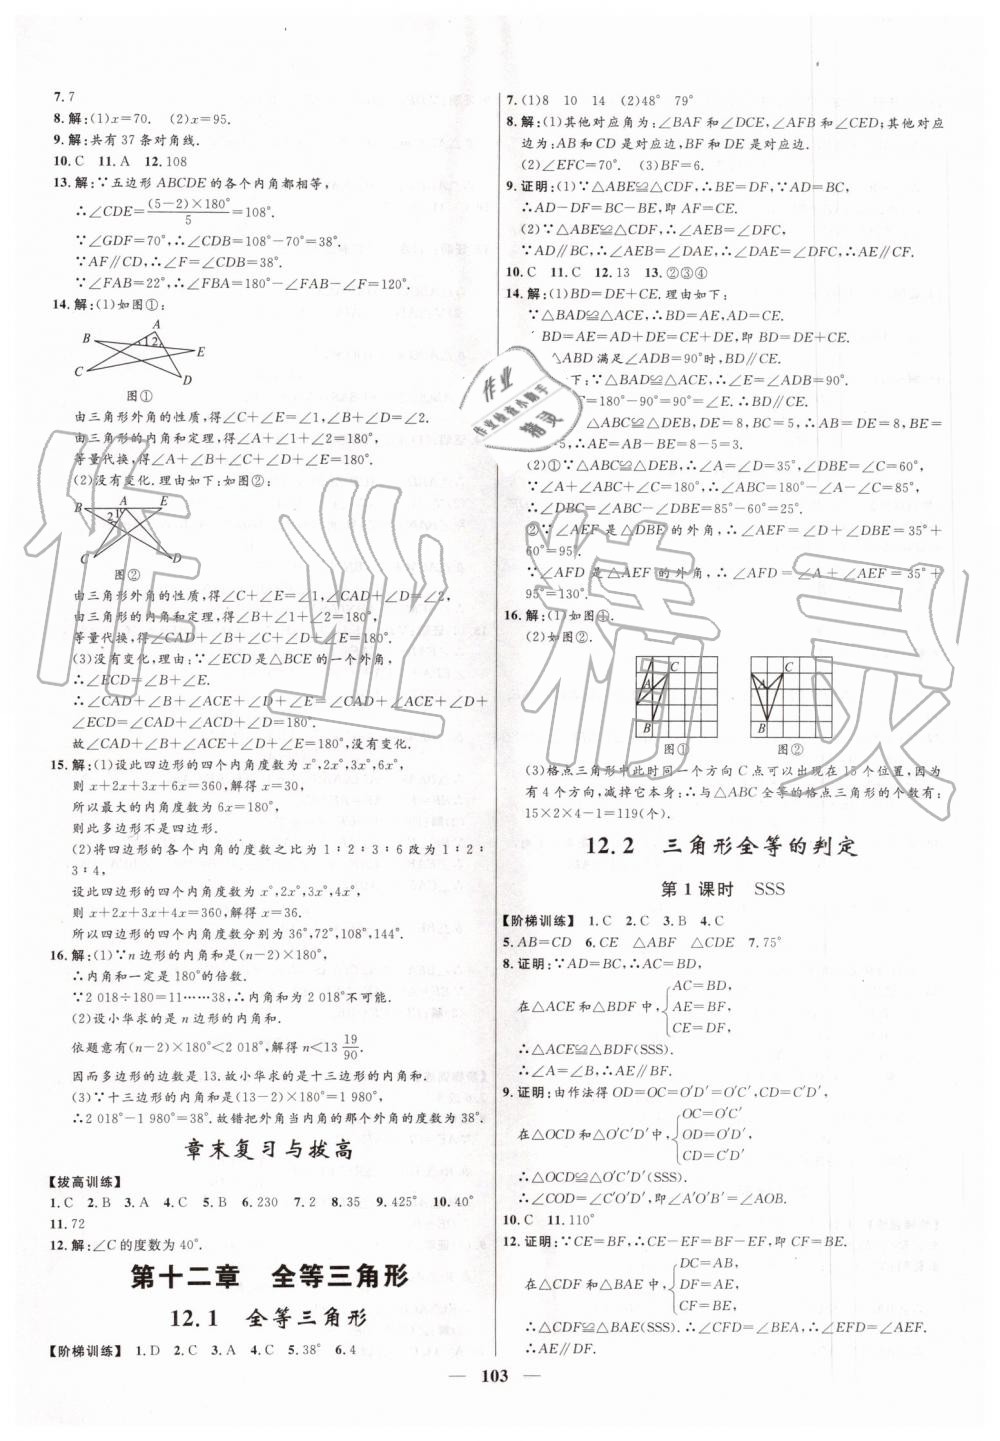 7.7
8.解:(1)x=70. (2)x=95.
9.解:共有 37 条对角线.
10.C 11.A 12.108
13.解:∵五边形 ABCDE 的各个内角都相等,
∴∠CDE=(5-2)×180°/5=108°.
∵∠GDF=70°,∴∠CDB=108°-70°=38°.
∵AF∥CD,∴∠F=∠CDB=38°.
∵∠FAB=22°,∴∠FBA=180°-∠FAB-∠F=120°.
14.解:(1)如图①:
A
B
1 2
E
C
D
图①
由三角形外角的性质,得∠C+∠E=∠1,∠B+∠D=∠2.
由三角形的内角和定理,得∠A+∠1+∠2=180°.
等量代换,得∠A+∠B+∠C+∠D+∠E=180°.
(2)没有变化.理由如下:如图②:
B A E
2 1
C D
图②
由三角形外角的性质,得∠C+∠E=∠1,∠CAD+∠D=∠2.
由三角形的内角和定理,得∠B+∠1+∠2=180°.
等量代换,得∠CAD+∠B+∠C+∠D+∠E=180°.
(3)没有变化,理由:∵∠ECD是△BCE的一个外角,
∴∠ECD=∠B+∠E.
∴∠CAD+∠B+∠ACE+∠D+∠E=∠CAD+∠ACE+∠D+
∠ECD=∠CAD+∠ACD+∠D=180°.
故∠CAD+∠B+∠ACE+∠D+∠E=180°,没有变化.
15.解:(1)设此四边形的四个内角度数为 x°,2x°,3x°,6x°,
则 x+2x+3x+6x=360,解得 x=30,
所以最大的内角度数 6x=180°,
则此多边形不是四边形.
(2)将四边形的各个内角的度数之比为 1∶2∶3∶6 改为 1∶2∶
3∶4,
设此四边形的四个内角度数为 x°,2x°,3x°,4x°,
则 x+2x+3x+4x=360,解得 x=36.
所以四边形的四个内角度数分别为 36°,72°,108°,144°.
16.解:(1)∵n边形的内角和是(n-2)×180°,
∴内角和一定是 180°的倍数.
∵2 018÷180=11……38,∴内角和为 2 018°不可能.
(2)设小华求的是 n 边形的内角和.
依题意有(n-2)×180°<2 018°,解得 n<13 19/90.
因而多边形的边数是 13.故小华求的是十三边形的内角和.
(3)∵十三边形的内角和是(13-2)×180°=1 980°,
∴2 018°-1 980°=38°.故错把外角当内角的那个外角的度数为 38°.
章末复习与拔高
【拔高训练】
1.C 2.B 3.A 4.C 5.B 6.230 7.2 8.35 9.425° 10.40°
11.72
12.解:∠C 的度数为 40°.
第十二章 全等三角形
12.1 全等三角形
【阶梯训练】 1.D 2.C 3.A 4.C 5.38° 6.4
7.(1)8 10 14 (2)48° 79°
8.解:(1)其他对应角为:∠BAF 和∠DCE,∠AFB 和∠CED;其他对应
边为:AB 和 CD 是对应边,BF 和 DE 是对应边.
(2)∠EFC=70°. (3)BF=6.
9.证明:(1)∵△ABE≌△CDF,∴BE=DF,∵AD=BC,
∴AD-DF=BC-BE,即 AF=CE.
(2)∵△ABE≌△CDF,∴∠AEB=∠DFC,
∵AD∥BC,∴∠AEB=∠DAE,∴∠DAE=∠DFC,∴AE∥CF.
10.C 11.C 12.13 13.②③④
14.解:(1)BD=DE+CE.理由如下:
∵△BAD≌△ACE,∴BD=AE,AD=CE.
BD=AE=AD+DE=CE+DE,即 BD=DE+CE.
ABD 满足∠ADB=90°时,BD∥CE.
下:∵△BAD≌△ACE,∴∠E=∠ADB=90°,
=180°-90°=90°,∴∠BDE=∠E,∴BD∥CE.
△ABC≌△DEB,DE=8,BC=5,∴AB=DE=8,BE=
=5,∴AE=AB-BE=8-5=3.
(2)①∵△ABC≌△DEB,∴∠A=∠D=35°,∠DBE=∠C=60°,
∵∠A+∠ABC+∠C=180°,∴∠ABC=180°-∠A-∠C=85°,
∴∠DBC=∠ABC-∠DBE=85°-60°=25°.
②∵∠AEF 是△DBE 的外角,∴∠AEF=∠D+∠DBE=35°+
60°=95°.
∵∠AFD 是△AEF 的外角,∴∠AFD=∠A+∠AEF=35°+
95°=130°.
16.解:(1)如图①.
(2)如图②.
C
A
B
图①
C
A
B
图②
(3)格点三角形中此时同一个方向 C 点可以出现在 15 个位置,因为
有 4 个方向,减掉它本身;∴与△ABC 全等的格点三角形的个数有:
15×2×4-1=119(个).
12.2 三角形全等的判定
第 1 课时 SSS
【阶梯训练】 1.C 2.C 3.B 4.C
5.AB=CD 6.CE △ABF △CDE 7.75°
8.证明:∵AD=BC,∴AC=BD,
在△ACE 和△BDF 中,{AC=BD,
AE=BF,
CE=DF,
∴△ACE≌△BDF(SSS).
∴∠A=∠B,∴AE∥BF.
9.证明:由作法得 OD=OC=O′D′=O′C′,CD=C′D′,
在△OCD 和△O′C′D′中,{OC=O′C′
OD=O′D′,
CD=C′D′
∴△OCD≌△O′C′D′(SSS).
∴∠COD=∠C′O′D′,即∠A′O′B′=∠AOB.
10.C 11.110°
12.证明:∵CE=BF,∴CE-EF=BF-EF,即 CF=BE.
在△CDF 和△BAE 中,{DC=AB,
DF=AE,
CF=BE,
∴△CDF≌△BAE(SSS).∴∠CFD=∠BEA,∴∠EFD=∠AEF.
∴AE∥DF.
— 103 —
作业
作业检查小助手
精灵
作业精灵